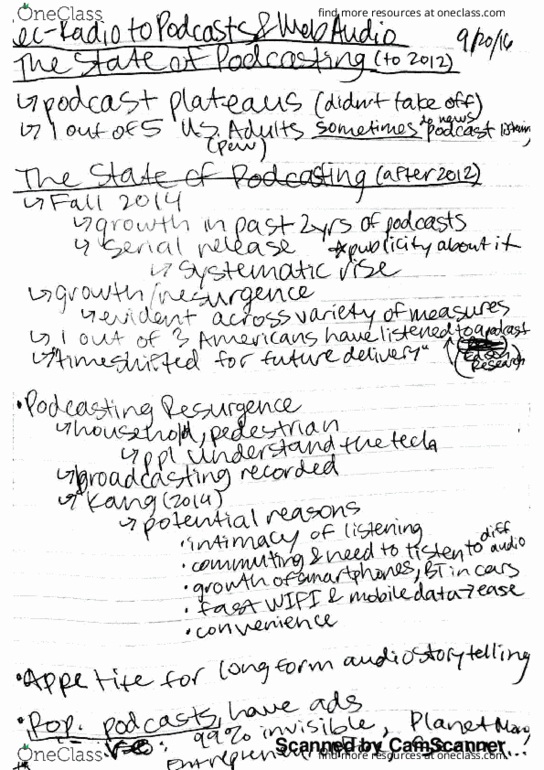 OneClass
find more resources at oneclass.com
find more resources at oneclass.com
ec-Radio to Podcasts & Web Audio
9/20/16
The State of Podcasting (to 2012)
↳ podcast plateaus (didn't take off)
↳ 1 out of 5 U.S. Adults sometimes podcast listening
to news
(pew)
The State of Podcasting (after 2012)
↳ Fall 2014
↳ growth in past 2yrs of podcasts
↳ serial release *publicity about it
↳ systematic rise
↳ growth/resurgence
↳ evident across variety of measures
↳ 1 out of 3 Americans have listened to a podcast
↳ "timeshifted for future delivery" ↑ (Edison Research)
• Podcasting Resurgence
↳ household, pedestrian
↳ ppl understand the tech
↳ broadcasting recorded
↳ Kang (2014)
↳ potential reasons
• intimacy of listening
• commuting & need to listen to diff audio
• growth of smartphones, BT in cars
• fast WIFI & mobile data → ease
• convenience
• Appetite for longform audio storytelling
• Pop. podcasts have ads
99% invisible, Planet Money,
OneClass
Scanned by CamScanner
find more resources at oneclass.com